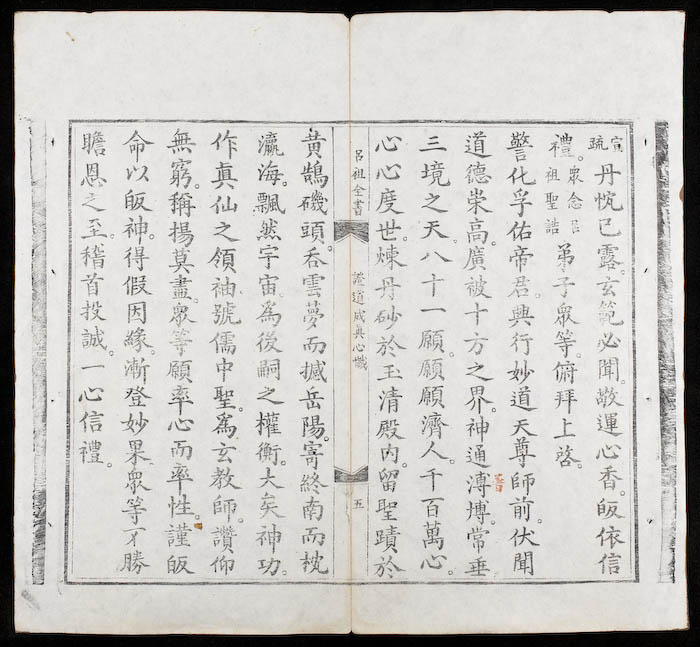 宣疏 丹悃已露。玄範必聞。敬運心香。皈依信
禮。衆念呂祖聖誥 弟子衆等。俯拜上啓。
警化孚佑帝君。興行妙道天尊師前。伏聞
道德榮高。廣被十方之界。神通溥博。常垂
三境之天。八十一願。願願濟人。千百萬心。
心心度世。煉丹砂於玉清殿內。留聖蹟於
呂祖全書
證道成真心懺
五
黄鵠磯頭。吞雲夢而撼岳陽。寄終南而枕
瀛海。飄然宇宙。為後嗣之權衡。大矣神功。
作真仙之領袖。號儒中聖。為玄教師。讚仰
無窮。稱揚莫盡。衆等願率心而率性。謹皈
命以皈神。得假因緣。漸登妙果。衆等不勝
瞻恩之至。稽首投誠。一心信禮。